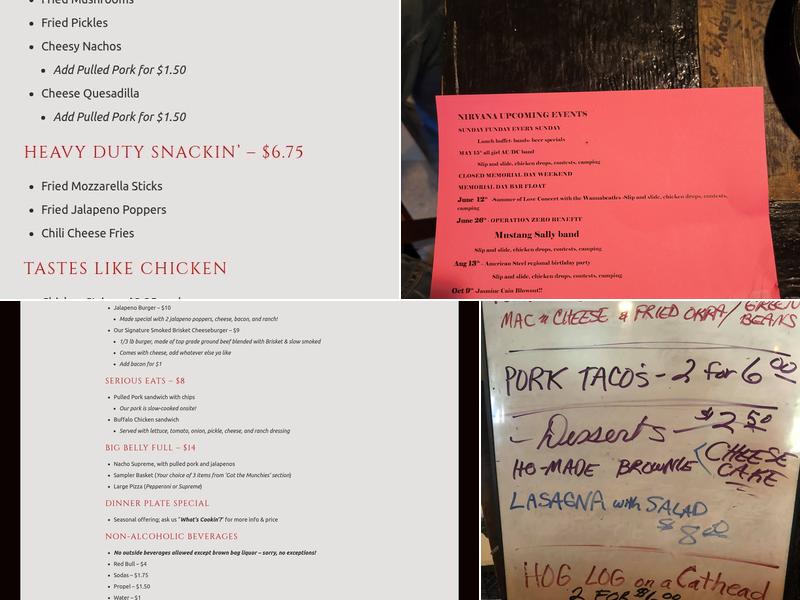 Fried Mushrooms
Fried Pickles
Cheesy Nachos
Add Pulled Pork for $1.50
Cheese Quesadilla
Add Pulled Pork for $1.50
HEAVY DUTY SNACKIN' – $6.75
Fried Mozzarella Sticks
Fried Jalapeno Poppers
Chili Cheese Fries
TASTES LIKE CHICKEN
NIRVANA UPCOMING EVENTS
SUNDAY FUNDAY EVERY SUNDAY
Lunch buffet- bands- beer specials
MAY 15th all girl AC/DC band
Slip and slide, chicken drops, contests, camping
CLOSED MEMORIAL DAY WEEKEND
MEMORIAL DAY BAR FLOAT
June 12th -Summer of Love Concert with the Wannabeatles -Slip and slide, chicken drops, contests,
camping
June 26th - OPERATION ZERO BENEFIT
Mustang Sally band
Slip and slide, chicken drops, contests, camping
Aug 13th - American Steel regional birthday party
Slip and slide, chicken drops, contests, camping
Oct 9th Jasmine Cain Blowout!!
Jalapeno Burger – $10
Made special with 2 jalapeno poppers, cheese, bacon, and ranch!
Our Signature Smoked Brisket Cheeseburger – $9
1/3 lb burger, made of top grade ground beef blended with Brisket & slow smoked
Comes with cheese, add whatever else ya like
Add bacon for $1
SERIOUS EATS – $8
Pulled Pork sandwich with chips
Our pork is slow-cooked onsite!
Buffalo Chicken sandwich
Served with lettuce, tomato, onion, pickle, cheese, and ranch dressing
BIG BELLY FULL – $14
Nacho Supreme, with pulled pork and jalapenos
Sampler Basket (Your choice of 3 items from 'Got the Munchies' section)
Large Pizza (Pepperoni or Supreme)
DINNER PLATE SPECIAL
Seasonal offering; ask us "What's Cookin'?" for more info & price
NON-ALCOHOLIC BEVERAGES
No outside beverages allowed except brown bag liquor – sorry, no exceptions!
Red Bull – $4
Sodas – $1.75
Propel – $1.50
Water – $1
MAC n CHEESE & FRIED OKRA/ GREEN
BEANS
PORK TACO'S - 2 for 6.00
- Desserts - $2.50
HO-MADE BROWNIE < CHEESE
CAKE
LASAGNA with SALAD
$8.00
HOG LOG on a Cathead
2 FOR $6.00